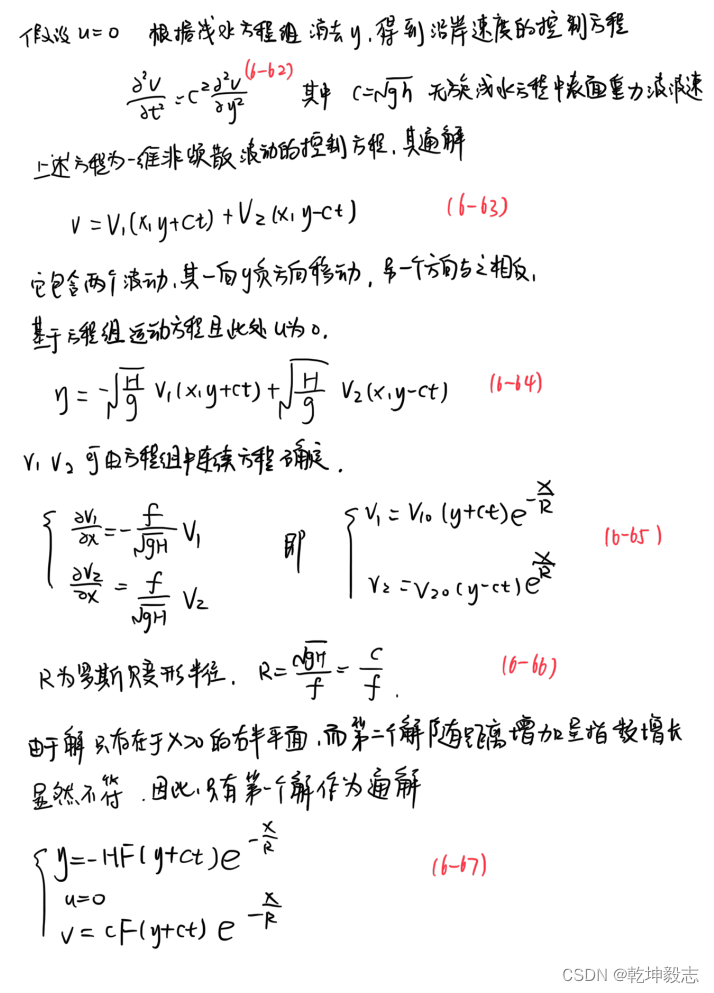 假设 u=0 根据浅水方程组 消去 y, 得到沿岸速度的控制方程
∂²v/∂t² = c² ∂²v/∂y² (6-62) 其中 C=√gh 无旋浅水方程中表面重力波波速
上述方程为一维非频散波动的控制方程, 其通解
v = V₁(x,y+ct) + V₂(x,y-ct) (6-63)
它包含两个波动, 其一向y负方向移动, 另一个方向与之相反,
基于方程组运动方程且此处 u为0,
η = -√(H/g) V₁(x,y+ct) + √(H/g) V₂(x,y-ct) (6-64)
V₁ V₂ 可由方程组中连续方程确定.
{ ∂V₁/∂x = -f/√gH V₁ 即 { V₁ = V₁₀(y+ct)e^(-x/R) (6-65)
∂V₂/∂x = f/√gH V₂ V₂ = V₂₀(y-ct)e^(x/R)
R为罗斯贝变形半径. R = √gH/f = c/f. (6-66)
由于解只存在于 x>0 的右半平面, 而第二个解随距离增加呈指数增长
显然不符. 因此, 只有第一个解作为通解
{ y = -HF(y+ct)e^(-x/R) (6-67)
u=0
v = cF(y+ct)e^(-x/R)
CSDN @乾坤毅志